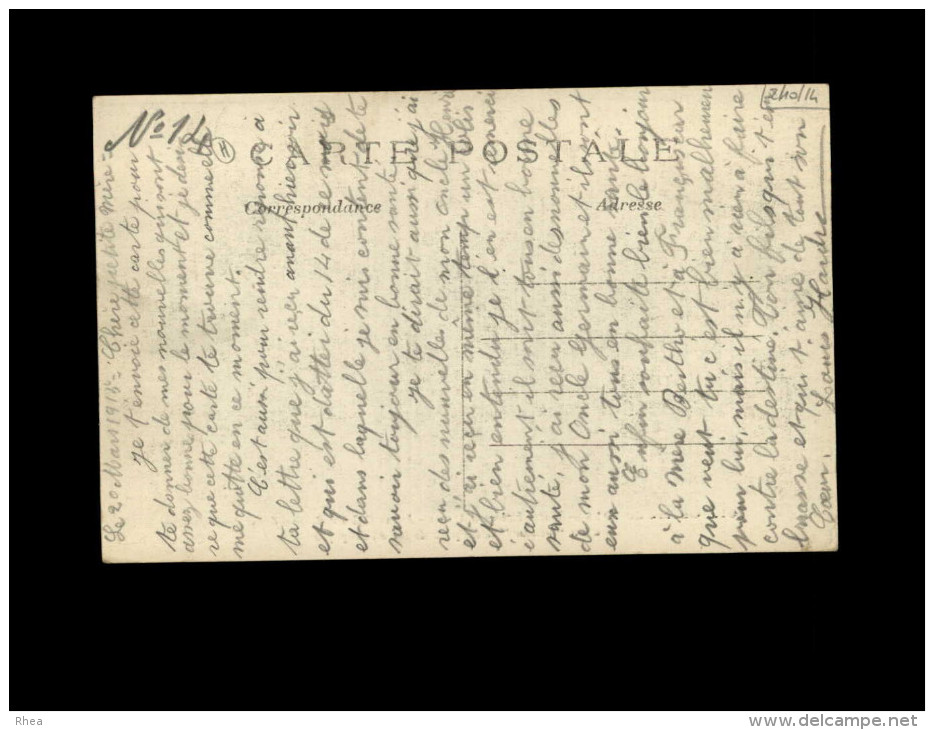 No 12
240/14
CARTE POSTALE
Correspondance
Adresse
Le 20 Mars 1915 = Chère petite Mère =
Je t'envoie cette carte pour
te donner de mes nouvelles qui sont
assez bonne pour le moment et je dési
re que cette carte te trouve comme elle
me quitte en ce moment.
C'est aussi pour rendre réponse à
ta lettre que j'ai reçu avant hier soir
et qui est dattée du 14 de ce mois
et dans laquelle je suis content de te
savoir toujour en bonne santé.
Je te dirait aussi que j'ai
reçu des nouvelles de mon oncle Henri
et j'ai reçu en même temp un colis
et bien entendu je l'en est remerci
é autrement il sont tous en bone
santé, j'ai reçu aussi des nouvelles
de mon Oncle Germain et il sont
eux aussi tous en bonne santé.
Enfin souhaite bien le bonjour
à la mère Berthe et à Françoise
que veut tu c'est bien malheureu
pour lui, mais il n'y à rien à faire
contre la destiné. Ton fils qui t'em
brasse et qui t'aime de tout son
Cœur. Louis
Rhea
www.delcampe.net